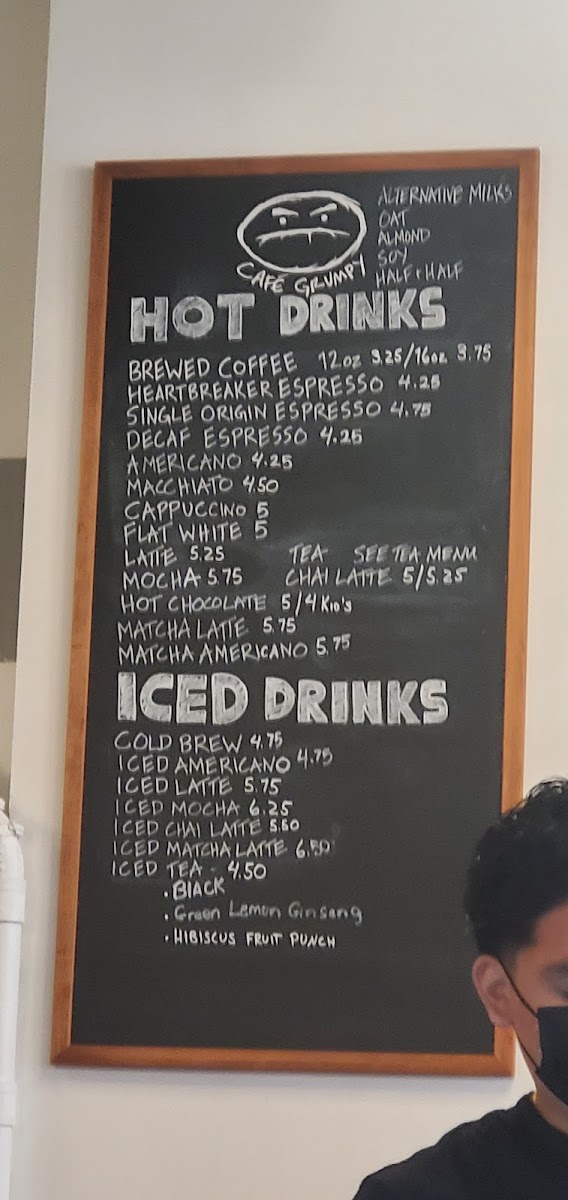 ALTERNATIVE MILKS
OAT
ALMOND
SOY
HALF & HALF
CAFÉ GRUMPY
HOT DRINKS
BREWED COFFEE 12oz 3.25/16oz 3.75
HEARTBREAKER ESPRESSO 4.25
SINGLE ORIGIN ESPRESSO 4.75
DECAF ESPRESSO 4.25
AMERICANO 4.25
MACCHIATO 4.50
CAPPUCCINO 5
FLAT WHITE 5
LATTE 5.25 TEA SEE TEA MENU
MOCHA 5.75 CHAI LATTE 5/5.25
HOT CHOCOLATE 5/4 KID'S
MATCHA LATTE 5.75
MATCHA AMERICANO 5.75
ICED DRINKS
COLD BREW 4.75
ICED AMERICANO 4.75
ICED LATTE 5.75
ICED MOCHA 6.25
ICED CHAI LATTE 5.50
ICED MATCHA LATTE 6.50
ICED TEA - 4.50
• BLACK
• Green Lemon Ginseng
• HIBISCUS FRUIT PUNCH